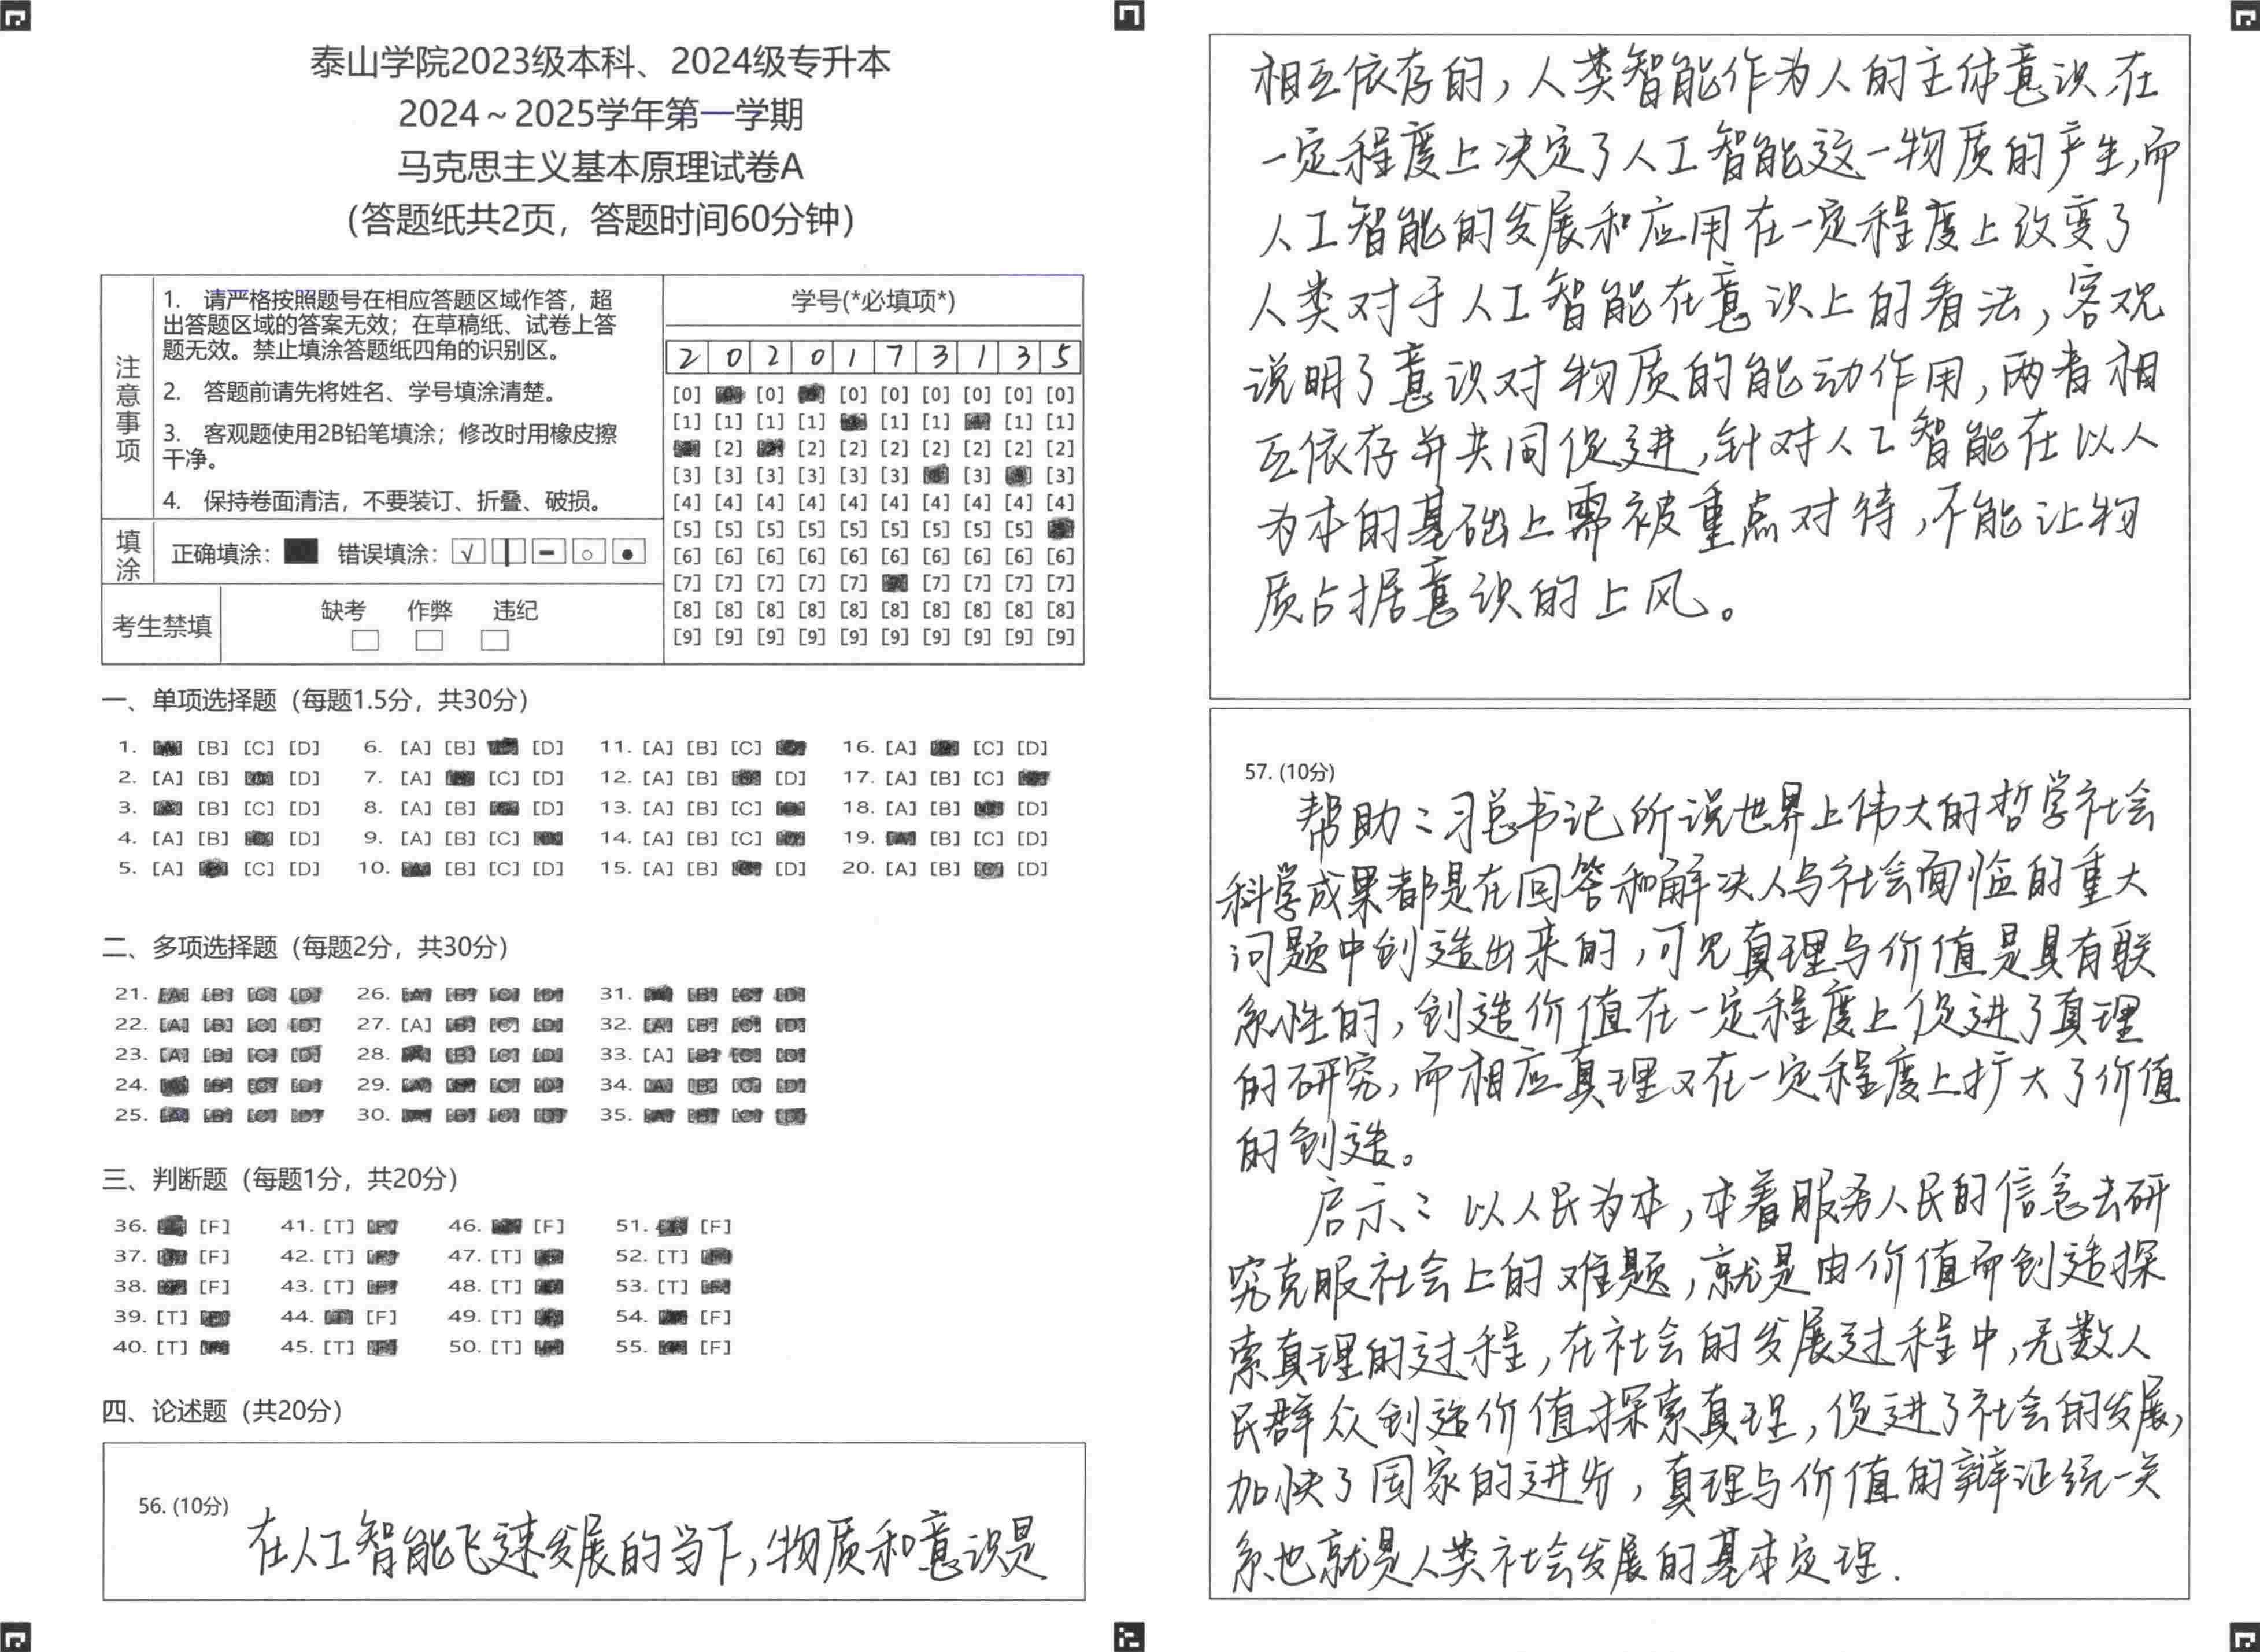 泰山学院2023级本科、2024级专升本
2024～2025学年第一学期
马克思主义基本原理试卷A
（答题纸共2页，答题时间60分钟）
注意事项
1. 请严格按照题号在相应答题区域作答，超
出答题区域的答案无效；在草稿纸、试卷上答
题无效。禁止填涂答题纸四角的识别区。
2. 答题前请先将姓名、学号填涂清楚。
3. 客观题使用2B铅笔填涂；修改时用橡皮擦
干净。
4. 保持卷面清洁，不要装订、折叠、破损。
填涂
正确填涂： 错误填涂：
考生禁填
缺考 作弊 违纪
学号(*必填项*)
2 0 2 0 1 7 3 1 3 5
[0] [0] [0] [0] [0] [0] [0] [0]
[1] [1] [1] [1] [1] [1] [1] [1]
[2] [2] [2] [2] [2] [2] [2] [2]
[3] [3] [3] [3] [3] [3] [3] [3]
[4] [4] [4] [4] [4] [4] [4] [4] [4] [4]
[5] [5] [5] [5] [5] [5] [5] [5] [5]
[6] [6] [6] [6] [6] [6] [6] [6] [6] [6]
[7] [7] [7] [7] [7] [7] [7] [7] [7]
[8] [8] [8] [8] [8] [8] [8] [8] [8] [8]
[9] [9] [9] [9] [9] [9] [9] [9] [9] [9]
一、单项选择题（每题1.5分，共30分）
1. [B] [C] [D] 6. [A] [B] [D] 11. [A] [B] [C] 16. [A] [C] [D]
2. [A] [B] [D] 7. [A] [C] [D] 12. [A] [B] [D] 17. [A] [B] [C]
3. [B] [C] [D] 8. [A] [B] [D] 13. [A] [B] [C] 18. [A] [B] [D]
4. [A] [B] [D] 9. [A] [B] [C] 14. [A] [B] [C] 19. [B] [C] [D]
5. [A] [C] [D] 10. [B] [C] [D] 15. [A] [B] [D] 20. [A] [B] [D]
二、多项选择题（每题2分，共30分）
21. [A] [B] [C] [D] 26. [A] [B] [C] [D] 31. [A] [B] [C] [D]
22. [A] [B] [C] [D] 27. [A] [B] [C] [D] 32. [A] [B] [C] [D]
23. [A] [B] [C] [D] 28. [A] [B] [C] [D] 33. [A] [B] [C] [D]
24. [A] [B] [C] [D] 29. [A] [B] [C] [D] 34. [A] [B] [C] [D]
25. [A] [B] [C] [D] 30. [A] [B] [C] [D] 35. [A] [B] [C] [D]
三、判断题（每题1分，共20分）
36. [F] 41. [T] 46. [F] 51. [F]
37. [F] 42. [T] 47. [T] 52. [T]
38. [F] 43. [T] 48. [T] 53. [T]
39. [T] 44. [F] 49. [T] 54. [F]
40. [T] 45. [T] 50. [T] 55. [F]
四、论述题（共20分）
56. (10分)
在人工智能飞速发展的当下，物质和意识是
相互依存的，人类智能作为人的主体意识，在
一定程度上决定了人工智能这一物质的产生，而
人工智能的发展和应用在一定程度上改变了
人类对于人工智能在意识上的看法，客观
说明了意识对物质的能动作用，两者相
互依存并共同促进，针对人工智能在以人
为本的基础上需被重点对待，不能让物
质占据意识的上风。
57. (10分)
帮助：习总书记所说世界上伟大的哲学社会
科学成果都是在回答和解决人与社会面临的重大
问题中创造出来的，可见真理与价值是具有联
系性的，创造价值在一定程度上促进了真理
的研究，而相应真理又在一定程度上扩大了价值
的创造。
启示：以人民为本，本着服务人民的信念去研
究克服社会上的难题，就是由价值而创造探
索真理的过程，在社会的发展过程中，无数人
民群众创造价值探索真理，促进了社会的发展，
加快了国家的进步，真理与价值的辩证统一关
系也就是人类社会发展的基本定理.